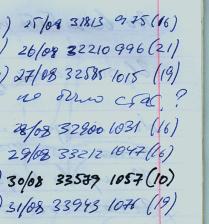 ) 25/08 31813 975 (16)
) 26/08 32210 996 (21)
) 27/08 32585 1015 (19)
не было свс. ?
28/08 32900 1031 (16)
29/08 33212 1047 (16)
30/08 33579 1057 (10)
31/08 33943 1076 (19)